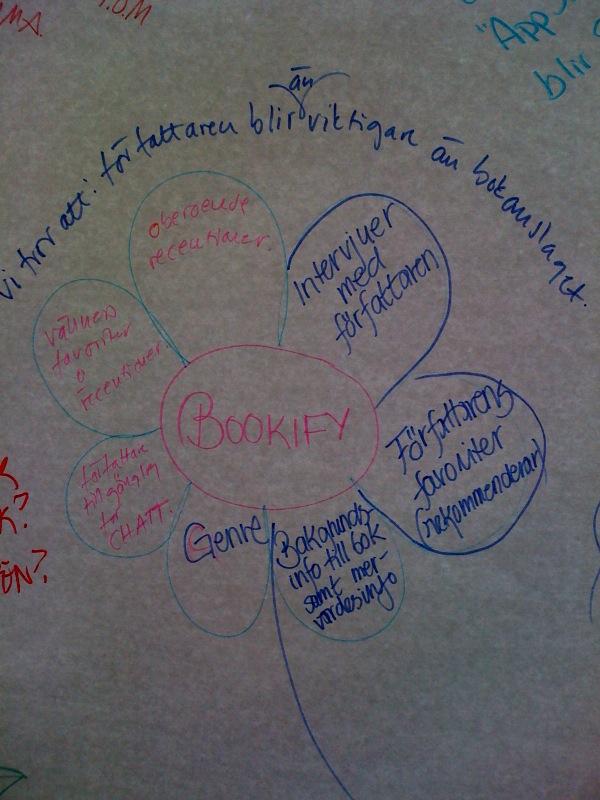 "App
blir
än
vi tror att: författaren blir viktigare än bokomslaget.
oberoende
recentioner.
Intervjuer
med
författaren
vänners
favoriter
o
recentioner
BOOKIFY
Författarens
favoriter
(rekommenderar)
författare
tillgänglig
för
CHATT.
Genre
Bakgrunds-
info till bok
samt mer-
värdesinfo
K?
ÖN?